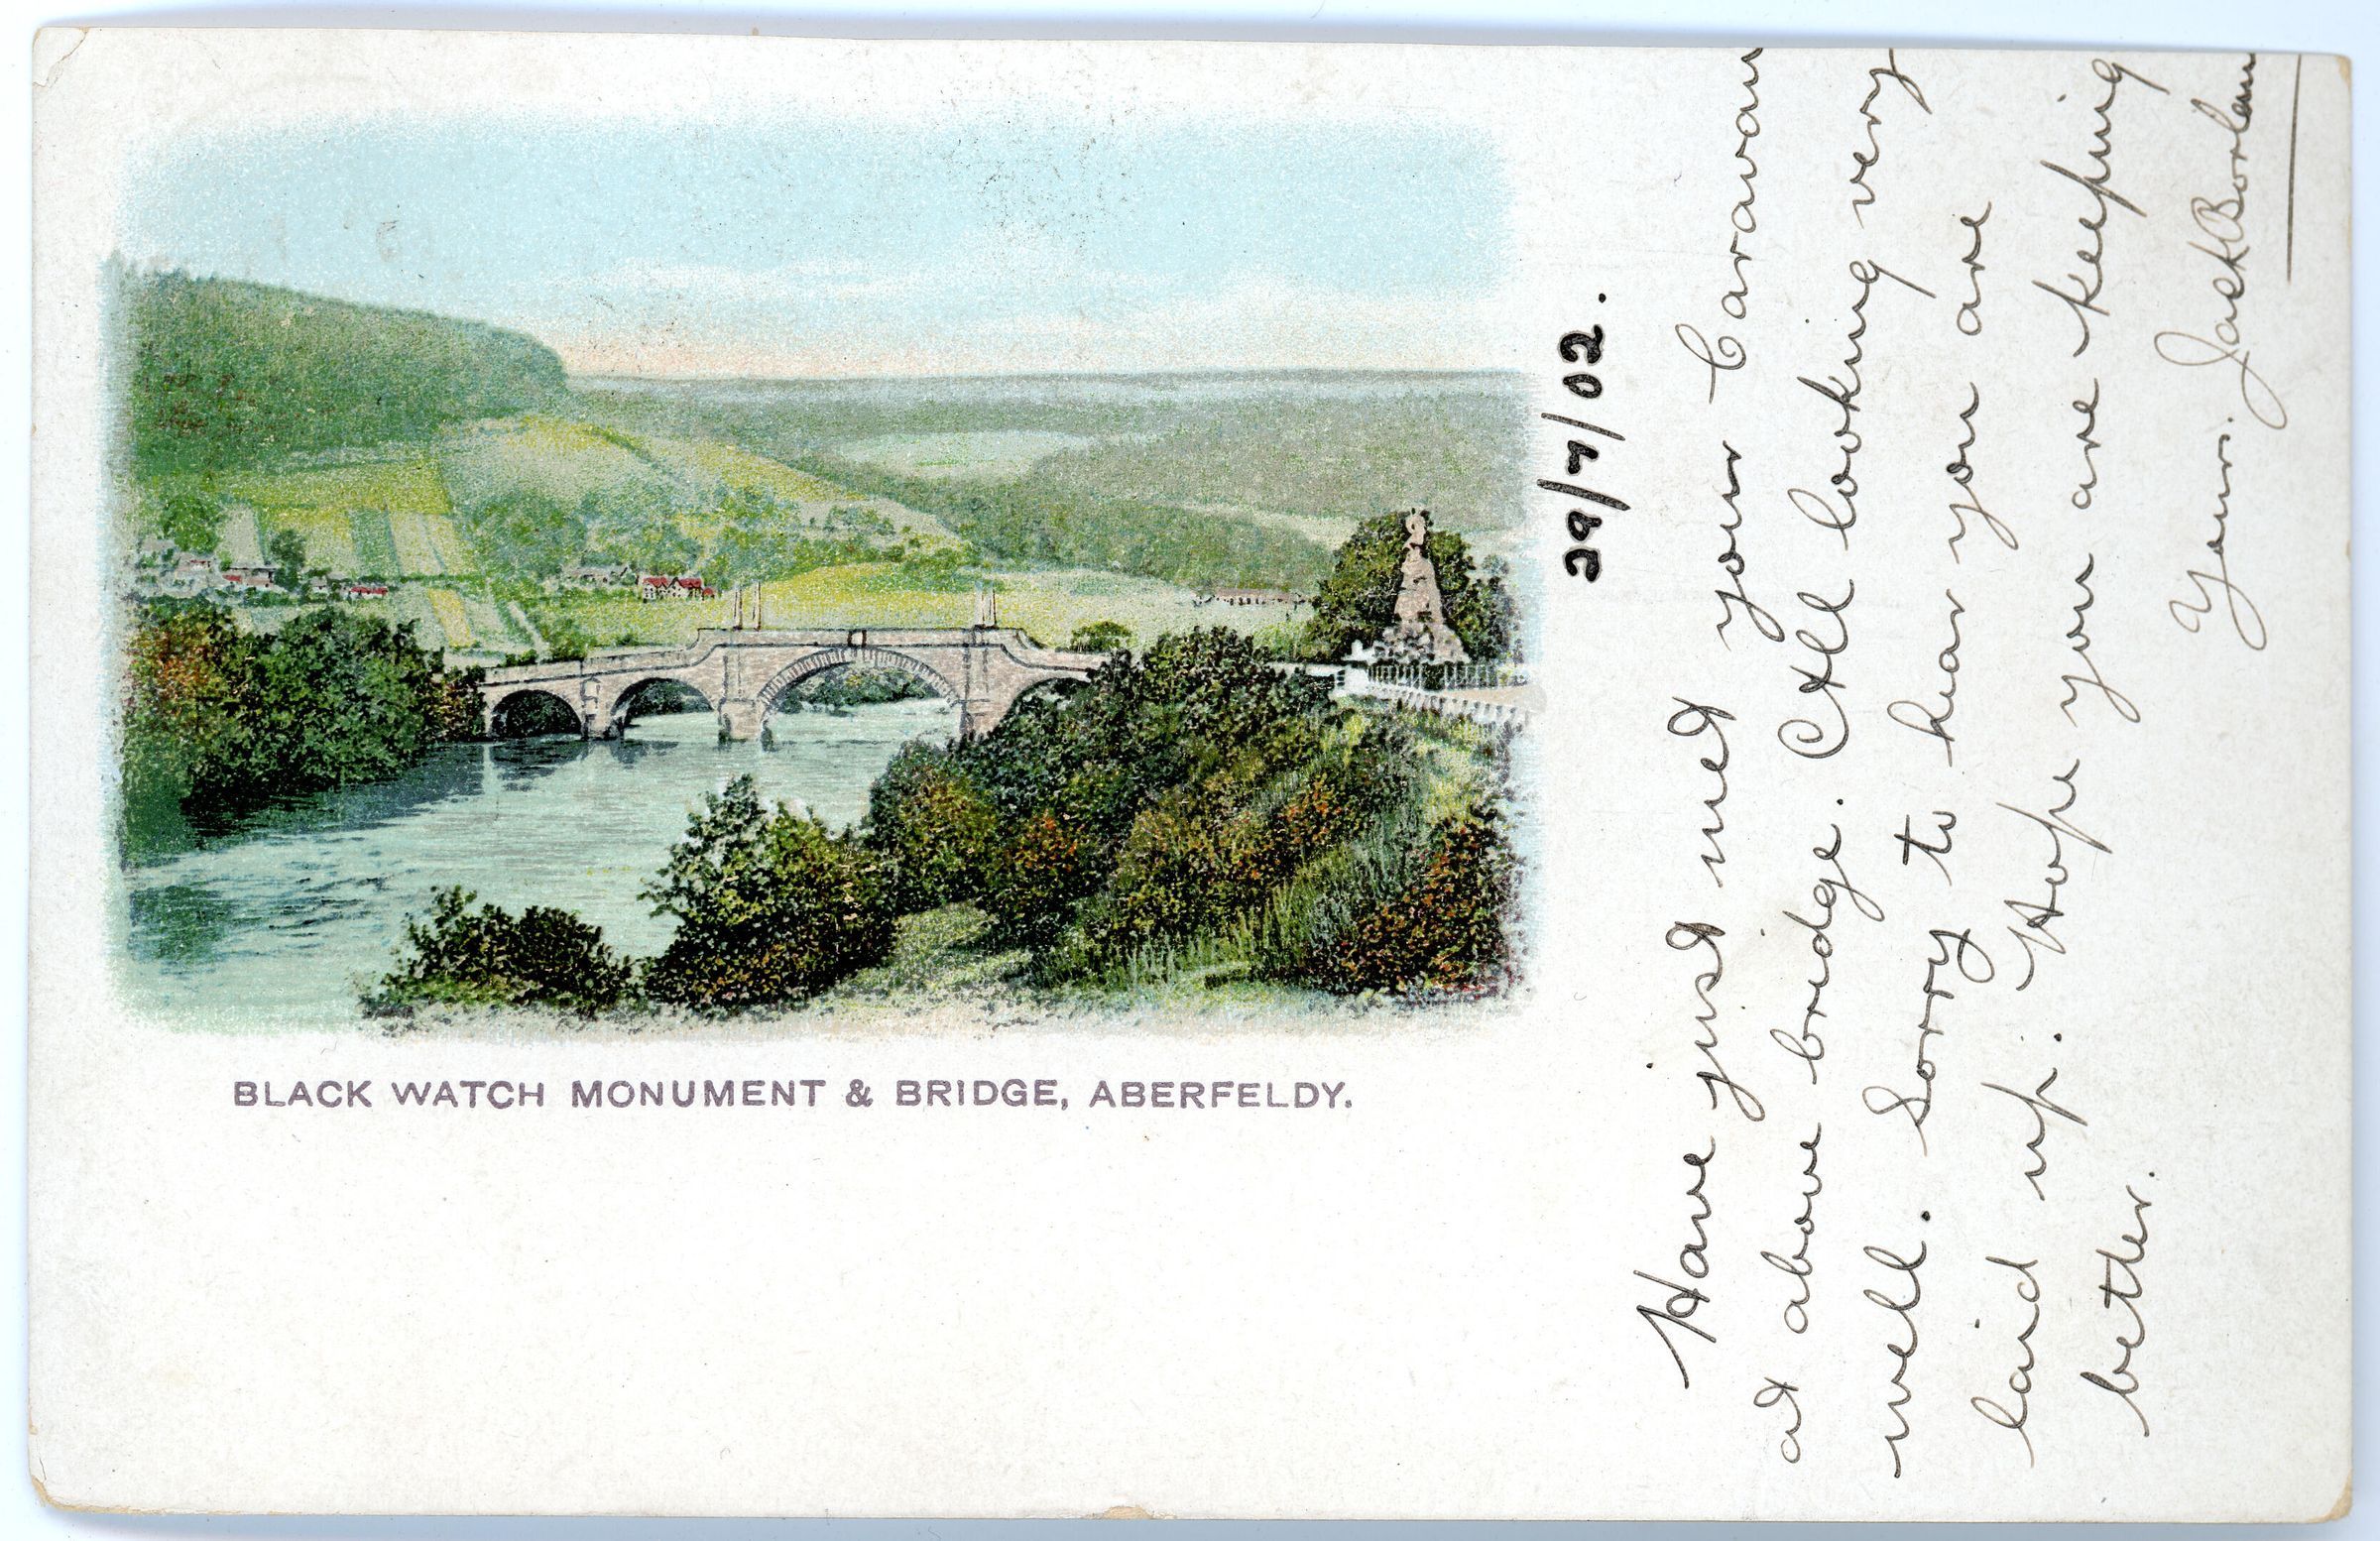 BLACK WATCH MONUMENT & BRIDGE, ABERFELDY.
29/7/02.
Have just met your Caravan
at above bridge. All looking very
well. Sorry to hear you are
laid up. Hope you are keeping
better.
Yours. Jack